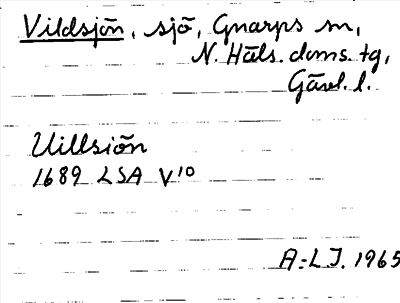 Vildsjön, sjö, Gnarps sn,
N. Häls. doms. tg,
Gävl. l.
Uillsiön
1689 LSA V10
A-LJ. 1965